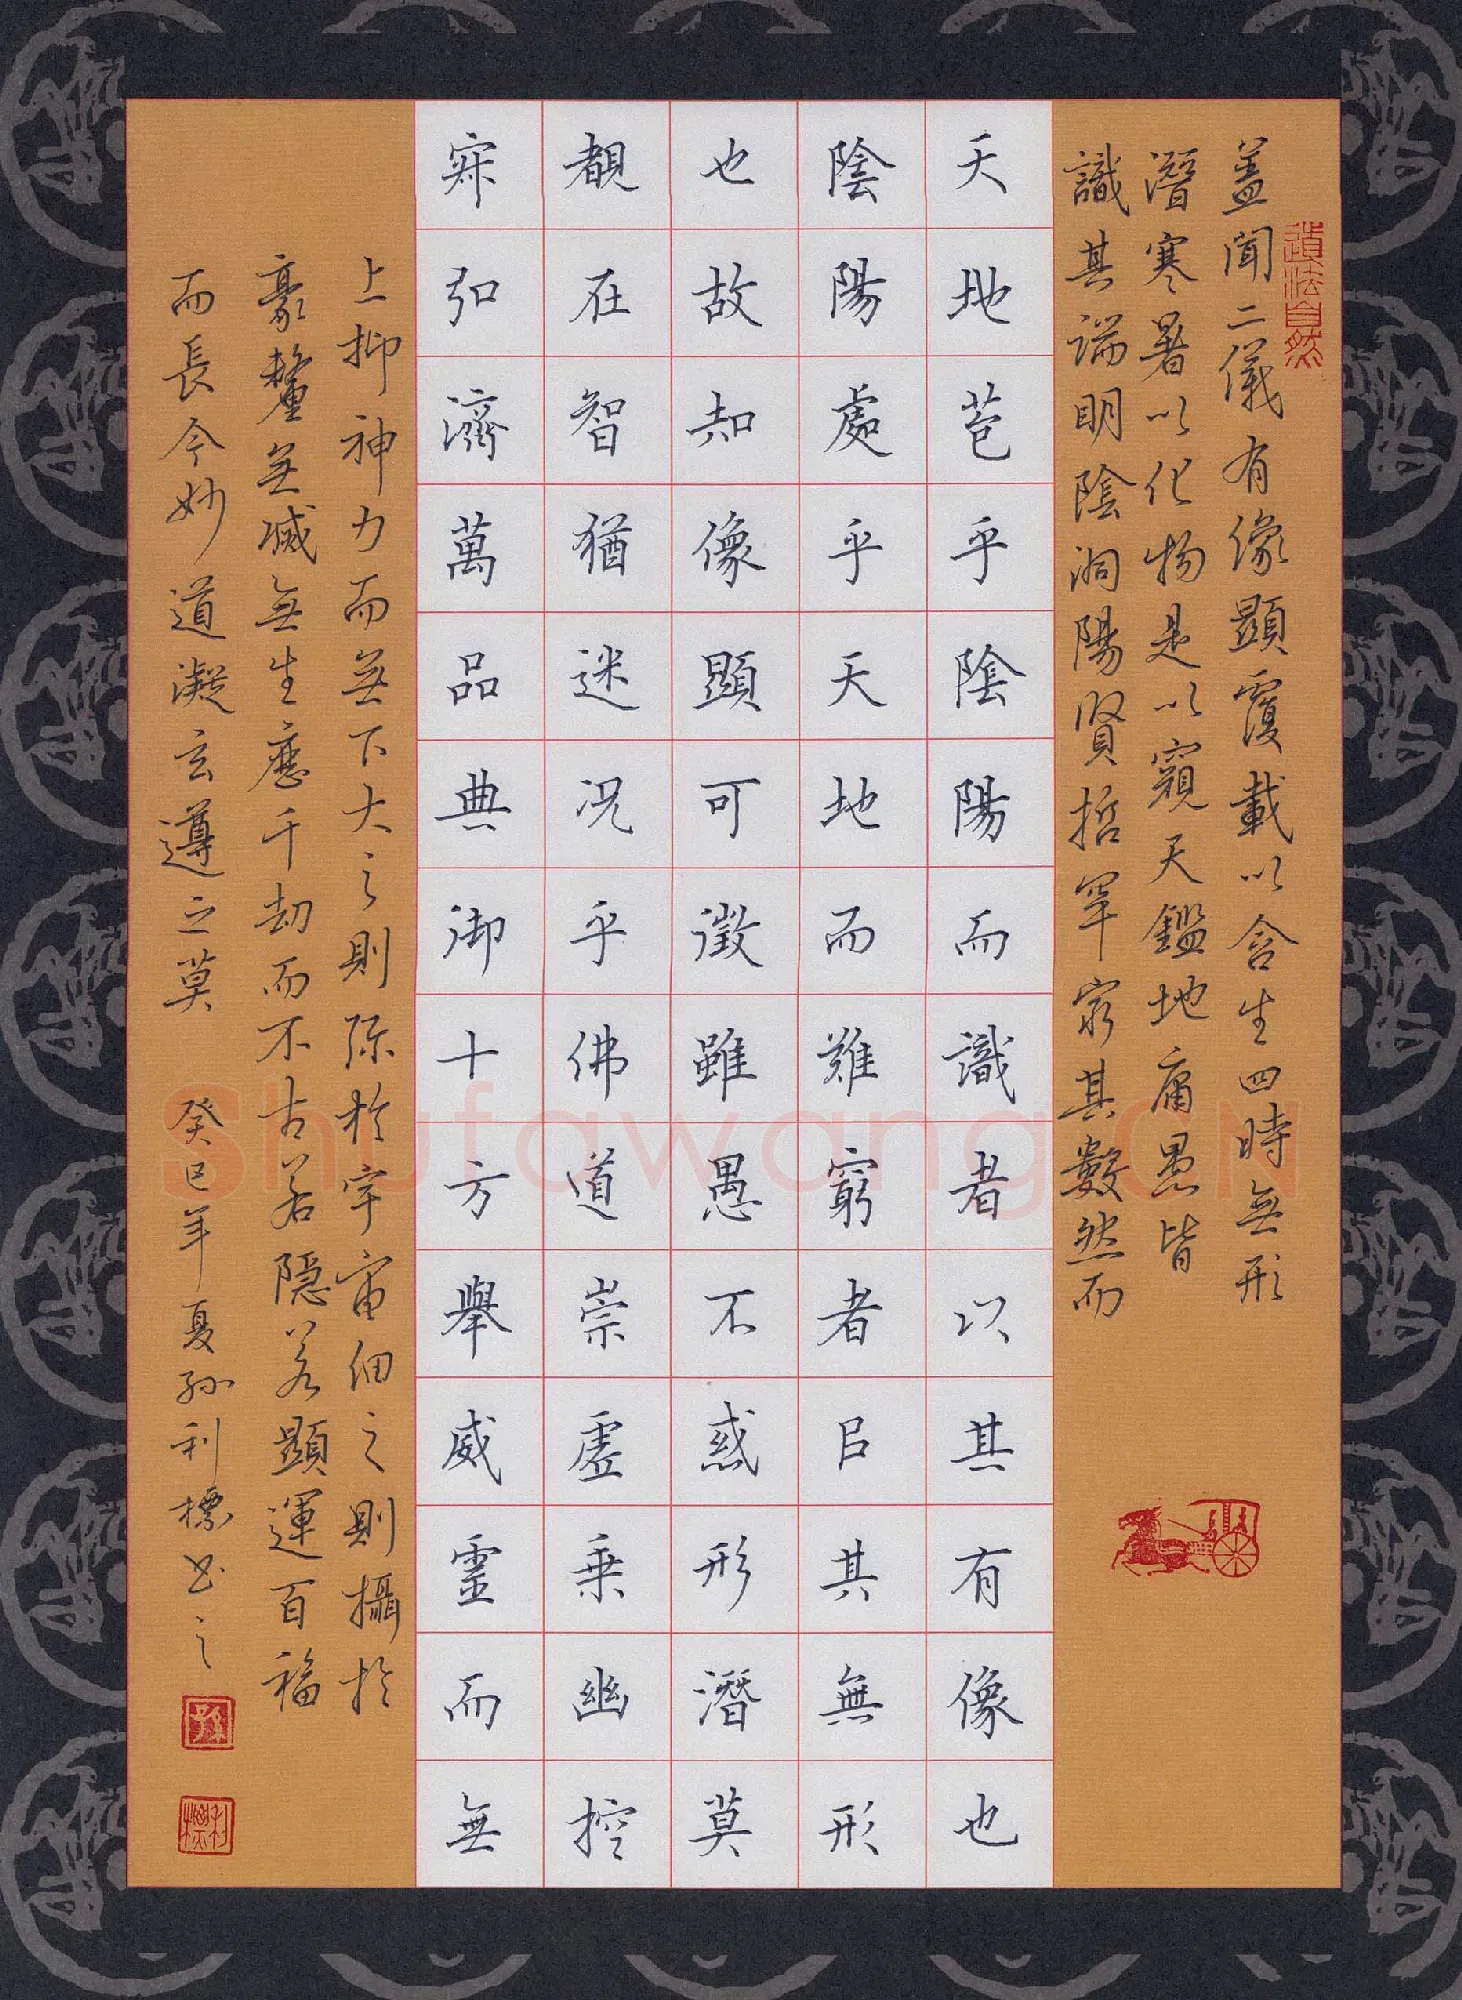 道法自然
盖聞二儀有像顯覆載以含生四時無形
潛寒暑以化物是以窺天鑑地庸愚皆
識其端明陰洞陽賢哲罕窮其數然而
天地苞乎陰陽而識者以其有像也
陰陽處乎天地而難窮者㠯其無形
也故知像顯可徵雖愚不惑形潛莫
覩在智猶迷況乎佛道崇虛乗幽控
寂弘濟萬品典御十方舉威靈而無
上抑神力而無下大之則弥於宇宙細之則攝於
豪釐無滅無生應千劫而不古若隱若顯運百福
而長今妙道凝玄遵之莫 癸巳年夏孫利標书之
孫
利標
Shufawang.CN